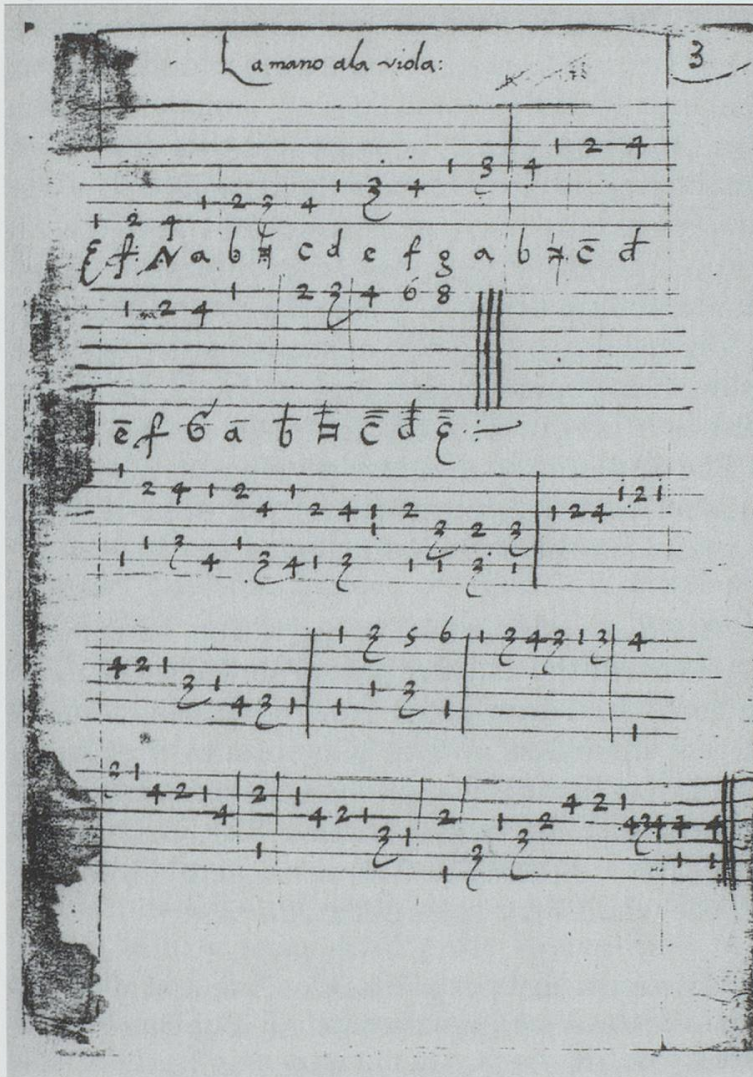 La mano ala viola: 3
1 2 4 1 2 3 4 1 3 4 1 3 4 1 2 4
f a b ♮ c d e f g a b c̄ d̄
1 2 4 1 2 3 4 6 8
ē f ā b̄
1 2 4 1 2 4 1 2 4 1 2 3 2 3 1 2 4 1 2 1
1 1 3 4 1 3 4 1 3 1 1 1 3 1
1 3 5 6 1 3 4 3 1 3 4
4 2 1 3 1 4 3 1 1 1 3 1 1
2 1 4 2 1 4 2 1 4 2 1 3 1 2 3 1 3 2 4 2 1 4 3 4 4 4
1 1 1 1